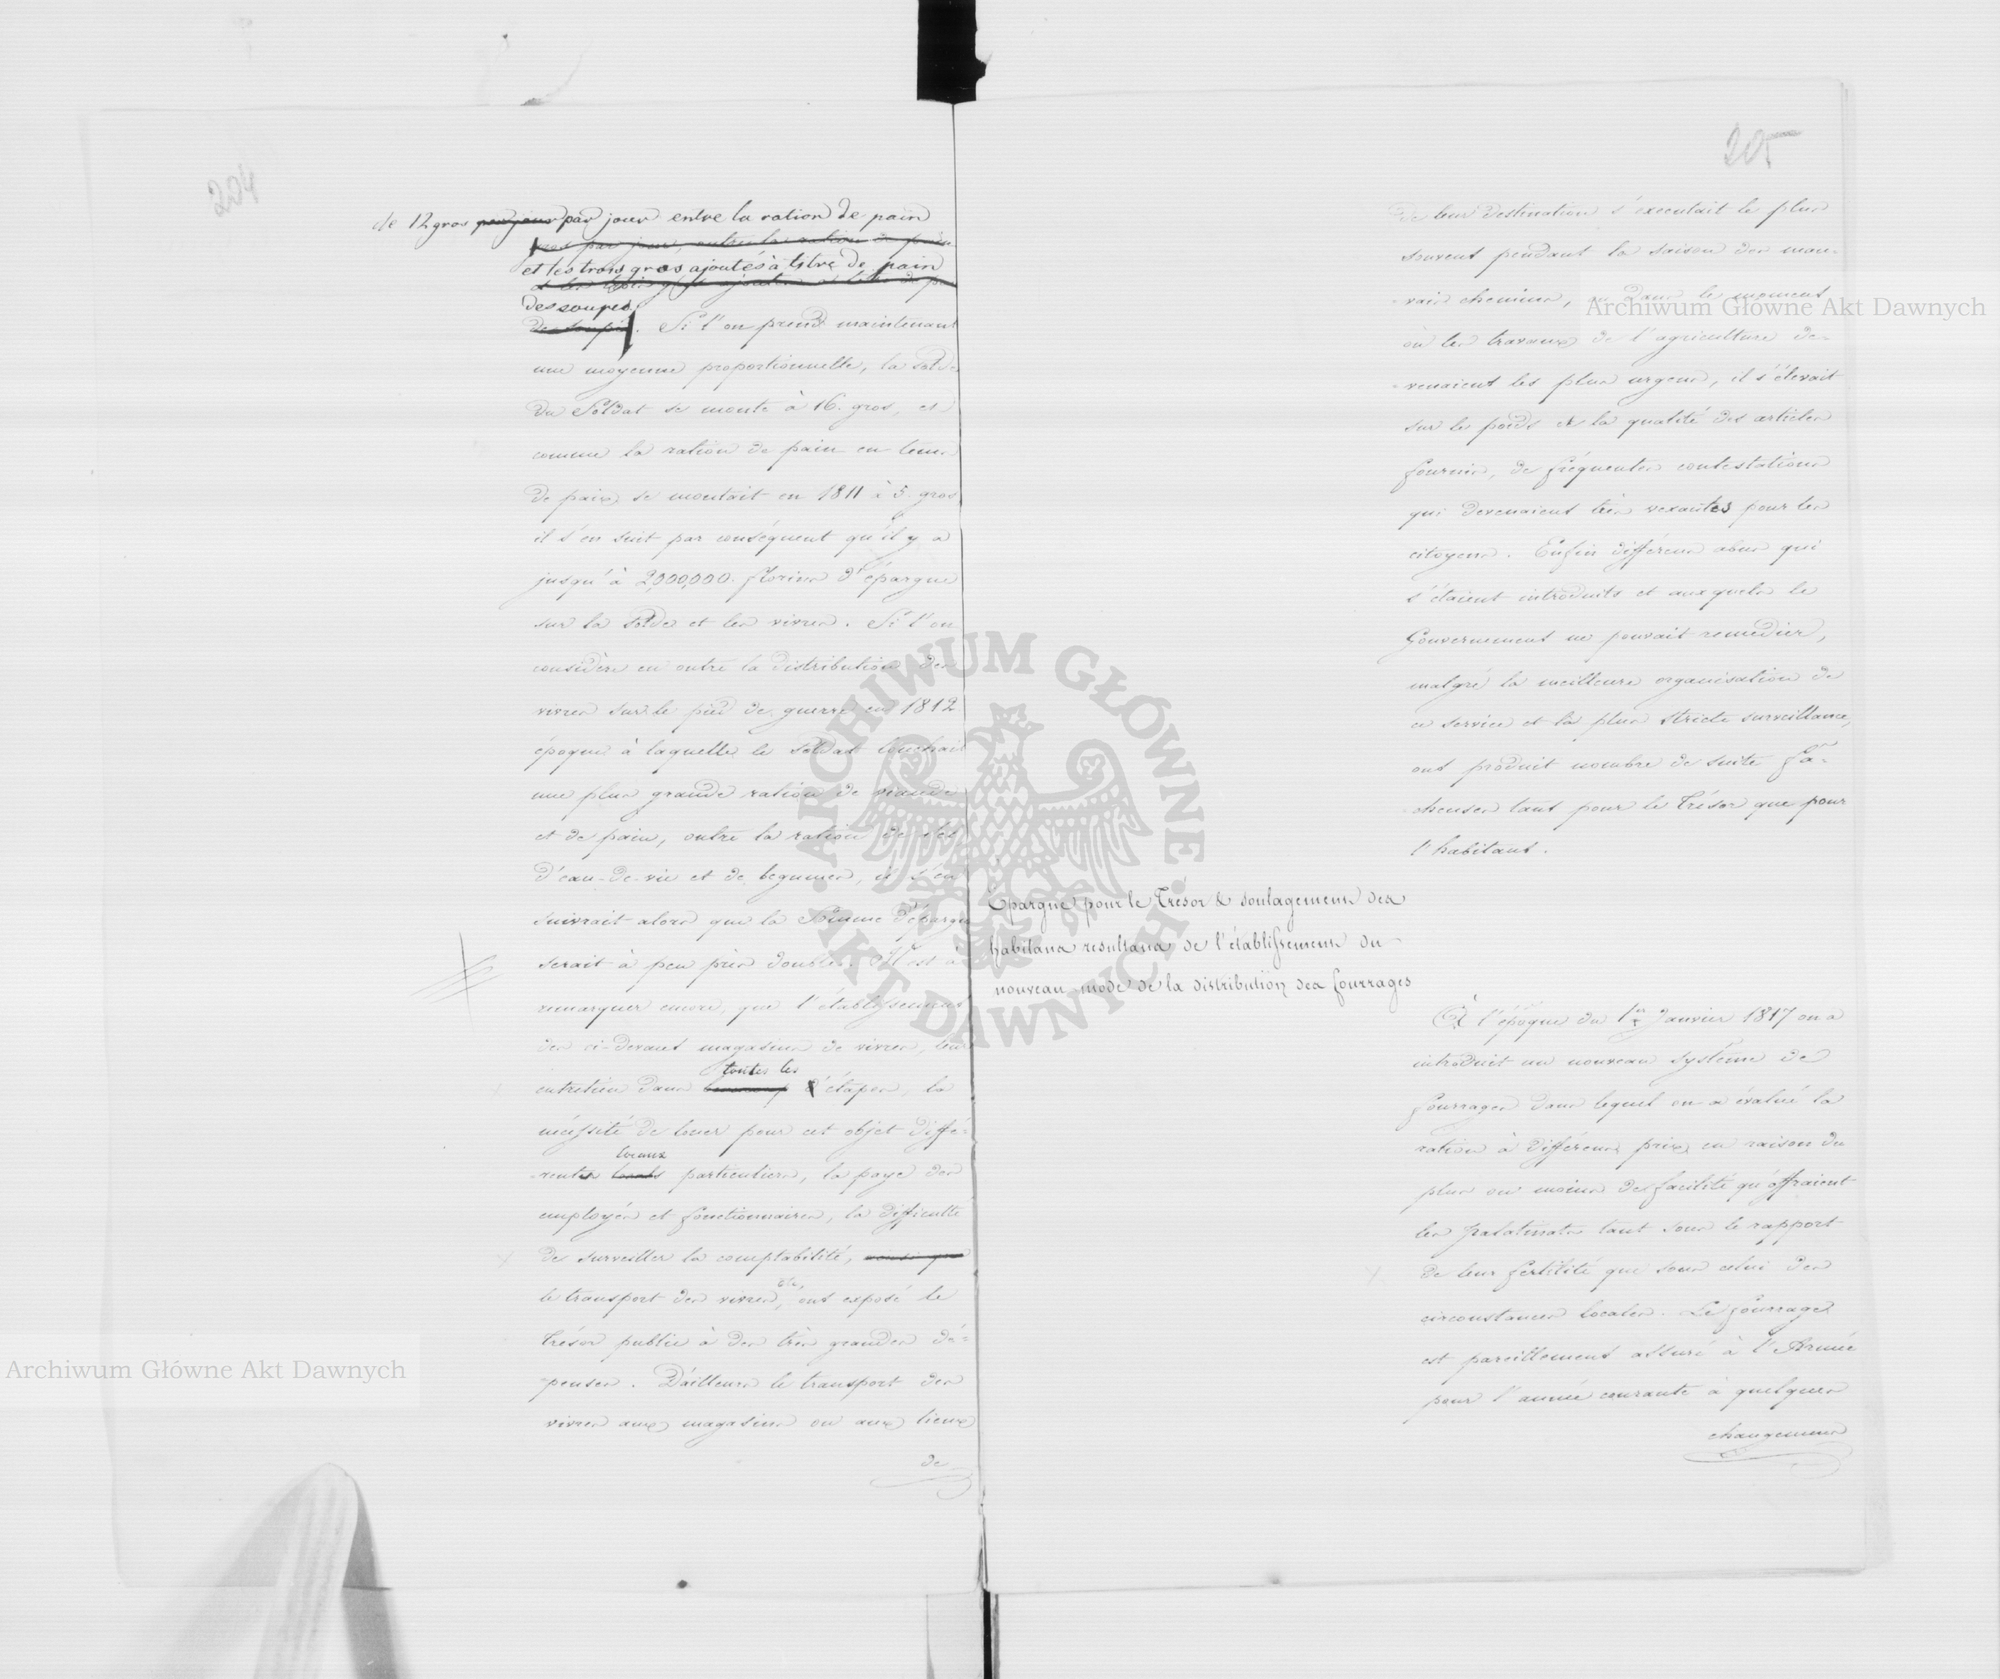 204
de 12 gros par jour par jour entre la ration de pain
gros par jour, outre la ration de pain
et les trois gros ajoutés à titre de pain
et les trois gros ajoutés à titre de pain
des soupes
de soupe. Si l'on prend maintenant
une moyenne proportionnelle, la solde
du Soldat se monte à 16. gros, et
comme la ration de pain en tems
de paix se montait en 1811 à 5. gros
il s'en suit par conséquent qu'il y a
jusqu'à 2,000,000. florins d'épargne
sur la solde et les vivres. Si l'on
considère en outre la distribution des
vivres sur le pied de guerre en 1812
époque à laquelle le soldat touchait
une plus grande ration de viande
et de pain, outre la ration de sel
d'eau-de-vie et de legumes, il s'en
suivrait alors que la somme d'épargne
serait à peu près double. Il est à
remarquer encore, que l'établissement
des ci-devant magasins de vivres, leur
toutes les
entretien dans d'étapes, la
nécessité de louer pour cet objet diffé-
locaux
-rents locals particuliers, la paye des
employés et fonctionnaires, la difficulté
de surveiller la comptabilité, ainsi que
le transport des vivres, etc, ont exposé le
trésor public à des très grandes dé-
penses. D'ailleurs le transport des
vivres aux magasins ou aux lieux
de
205
de leur destination s'executait le plus
souvent pendant la saison des mau-
-vais chemins, ou dans le moment
où les travaux de l'agriculture de-
-venaient les plus urgens, il s'élevait
sur le poids et la qualité des articles
fournis, de fréquentes contestations
qui devenaient très vexantes pour les
citoyens. Enfin différens abus qui
s'étaient introduits et auxquels le
Gouvernement ne pouvait remedier,
malgré la meilleure organisation de
ce service et la plus stricte surveillance,
ont produit nombre de suite fâ-
-cheuses tant pour le trésor que pour
l'habitant.
Epargne pour le Trésor & soulagemens des
habitans resultans de l'établissement du
nouveau mode de la distribution des fourrages
A l'époque du 1er Janvier 1817 on a
introduit un nouveau système de
fourrages dans lequel on a évalué la
ration à différens prix en raison du
plus ou moins de facilité qu'offraient
les palatinats tant sous le rapport
de leur fertilité que sous celui des
circonstances locales. Le fourrage
est pareillement assuré à l'Armée
pour l'année courante à quelques
changemens
Archiwum Główne Akt Dawnych
Archiwum Główne Akt Dawnych
ARCHIWUM GŁÓWNE AKT DAWNYCH